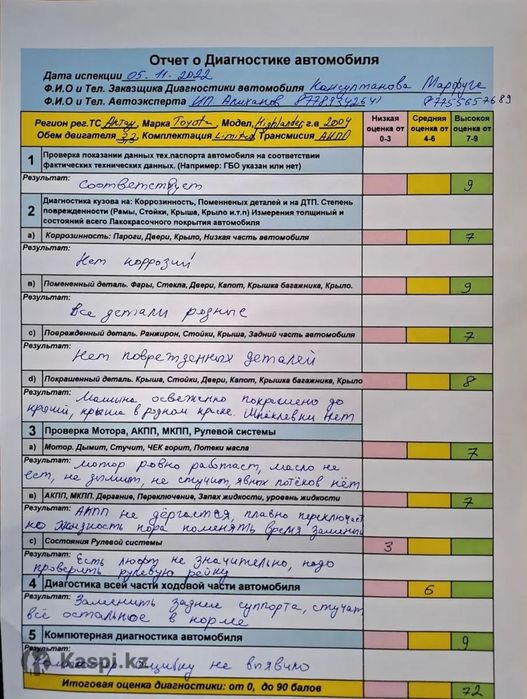 Отчет о Диагностике автомобиля
Дата инспекции 05.11.2022
Ф.И.О и Тел. Заказшика Диагностики автомобиля Консултанова Марфуге
Ф.И.О и Тел. Автоэксперта ИП Алиханов 87789342641 87755657689
Регион рег.ТС Актау, Марка Toyota, Модел, Highlander, г.в 2004
Обем двигателя 3,3 Комплектация Limited Трансмисия АКПП
Низкая оценка от 0-3
Средняя оценка от 4-6
Высокая оценка от 7-9
1 Проверка показании данных тех.паспорта автомобиля на соответствии
фактических технических данных. (Например: ГБО указан или нет)
Результат: Соответствует 9
2 Диагностика кузова на: Коррозность, Поменненых деталей и на ДТП. Степень
поврежденности (Рамы, Стойки, Крыша, Крыло и.т.п) Измерения толщиный и
состояний всего Лакокрасочного покрытия автомобиля
a) Коррозность: Пароги, Двери, Крыло, Низкая часть автомобиля 7
Результат: Нет коррозий
в) Помененный деталь. Фары, Стекла, Двери, Капот, Крышка багажника, Крыло. 9
Результат: Все детали родные
c) Поврежденный деталь. Ранжирон, Стойки, Крыша, Задний часть автомобиля 7
Результат: Нет поврежденных деталей
d) Покрашенный деталь. Крыша, Стойки, Двери, Капот, Крышка багажника, Крыло 8
Результат: Машина освеженно покрашено до
крыший, крыша в родном краске. Шпклевки нет
3 Проверка Мотора, АКПП, МКПП, Рулевой системы
a) Мотор. Дымит, Стучит, ЧЕК горит, Потеки масла 7
Результат: мотор ровно работает, масло не
ест, не дымит, не стучит, явных потёков нет
в) АКПП, МКПП. Дергание, Переключение, Запах жидкости, уровень жидкости 7
Результат: АКПП не дёргается, плавно переключает
но жидкость пора поменять время замены
c) Состояния Рулевой системы 3
Результат: Есть люфт не значительно, надо
проверить рулевую рейку
4 Диагостика всей части ходовой части автомобиля 6
Результат: Заменить задние суппорта, стучат
всё остальное в норме
5 Компютерная диагностика автомобиля 9
Результат:
ошибку не выявило
Kaspi.kz
Итоговая оценка диагностики: от 0, до 90 балов 72